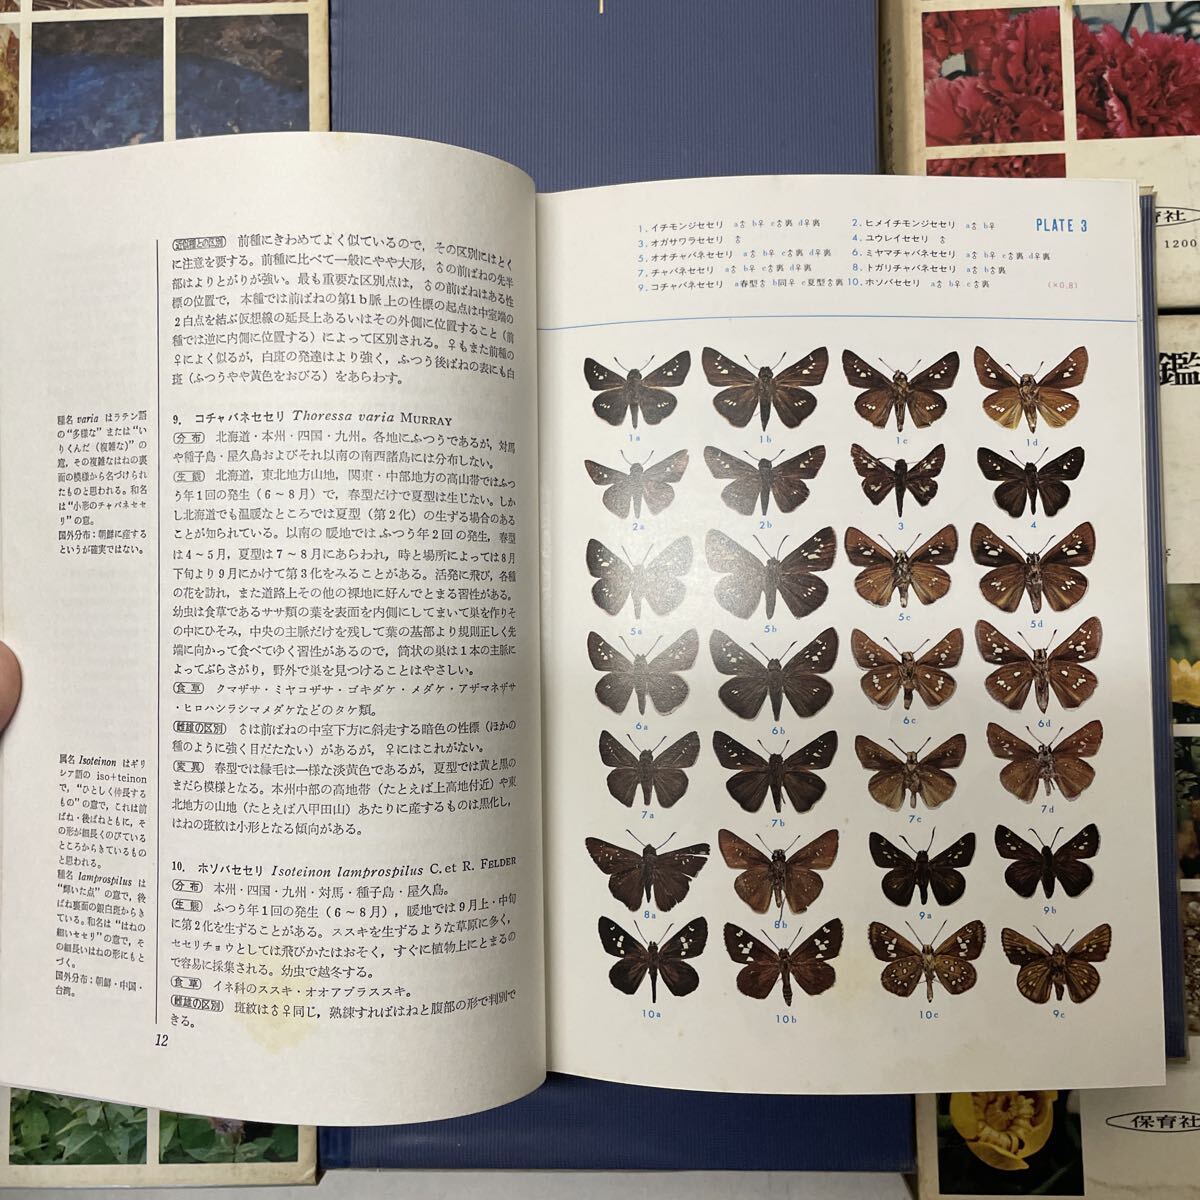 近似種との区別 前種にきわめてよく似ているので，その区別にはとく
に注意を要する。前種に比べて一般にやや大形，♂の前ばねの先半
部はよりとがりが強い。最も重要な区別点は，♂の前ばねはある性
標の位置で，本種では前ばねの第1b脈上の性標の起点は中室端の
2白点を結ぶ仮想線の延長上あるいはその外側に位置すること（前
種では逆に内側に位置する）によって区別される。♀もまた前種の
♀によく似るが，白斑の発達はより強く，ふつう後ばねの表にも白
斑（ふつうやや黄色をおびる）をあらわす。
9. コチャバネセセリ Thoressa varia MURRAY
分布 北海道・本州・四国・九州。各地にふつうであるが，対馬
や種子島・屋久島およびそれ以南の南西諸島には分布しない。
生態 北海道，東北地方山地，関東・中部地方の高山帯ではふつ
う年1回の発生（6～8月）で，春型だけで夏型は生じない。しか
し北海道でも温暖なところでは夏型（第2化）の生ずる場合のある
ことが知られている。以南の暖地ではふつう年2回の発生，春型
は4～5月，夏型は7～8月にあらわれ，時と場所によっては8月
下旬より9月にかけて第3化をみることがある。活発に飛び，各種
の花を訪れ，また道路上その他の裸地に好んでとまる習性がある。
幼虫は食草であるササ類の葉を表面を内側にしてまいて巣を作りそ
の中にひそみ，中央の主脈だけを残して葉の基部より規則正しく先
端に向かって食べてゆく習性があるので，筒状の巣は1本の主脈に
よってぶらさがり，野外で巣を見つけることはやさしい。
食草 クマザサ・ミヤコザサ・ゴキダケ・メダケ・アザマネザサ
・ヒロハシラシマメダケなどのタケ類。
雌雄の区別 ♂は前ばねの中室下方に斜走する暗色の性標（ほかの
種のように強く目だたない）があるが，♀にはこれがない。
変異 春型では縁毛は一様な淡黄色であるが，夏型では黄と黒の
まだら模様となる。本州中部の高地帯（たとえば上高地付近）や東
北地方の山地（たとえば八甲田山）あたりに産するものは黒化し，
はねの斑紋は小形となる傾向がある。
10. ホソバセセリ Isoteinon lamprospilus C. et R. FELDER
分布 本州・四国・九州・対馬・種子島・屋久島。
生態 ふつう年1回の発生（6～8月），暖地では9月上・中旬
に第2化を生ずることがある。ススキを生ずるような草原に多く，
セセリチョウとしては飛びかたはおそく，すぐに植物上にとまるの
で容易に採集される。幼虫で越冬する。
食草 イネ科のススキ・オオアブラススキ。
雌雄の区別 斑紋は♂♀同じ，熟練すればはねと腹部の形で判別で
きる。
種名 varia はラテン語
の“多様な”または“い
りくんだ（複雑な）”の
意，その複雑なはねの裏
面の模様から名づけられ
たものと思われる。和名
は“小形のチャバネセセ
リ”の意。
国外分布：朝鮮に産する
というが確実ではない。
属名 Isoteinon はギリ
シア語の iso+teinon
で，“ひとしく伸長する
もの”の意で，これは前
ばね・後ばねともに，そ
の形が細長くのびている
ところからきているもの
と思われる。
種名 lamprospilus は
“輝いた点”の意で，後
ばね裏面の銀白斑からき
ている。和名は“はねの
細いセセリ”の意で，そ
の細長いはねの形にもと
づく。
国外分布：朝鮮・中国・
台湾。
12
PLATE 3
1. イチモンジセセリ a♂ b♀ c♂裏 d♀裏
2. ヒメイチモンジセセリ a♂ b♀
3. オガサワラセセリ ♂
4. ユウレイセセリ ♂
5. オオチャバネセセリ a♂ b♀ c♂裏 d♀裏
6. ミヤマチャバネセセリ a♂ b♀ c♂裏 d♀裏
7. チャバネセセリ a♂ b♀ c♂裏 d♀裏
8. トガリチャバネセセリ a♂ b♂裏
9. コチャバネセセリ a春型♂ b同♀ c夏型♂裏
10. ホソバセセリ a♂ b♀ c♂裏
(×0.8)
1a 1b 1c 1d
2a 2b 3 4
5a 5b 5c 5d
6a 6b 6c 6d
7a 7b 7c 7d
8a 8b 9a 9b
10a 10b 10c 9c
育社
1200
鑑
保育社